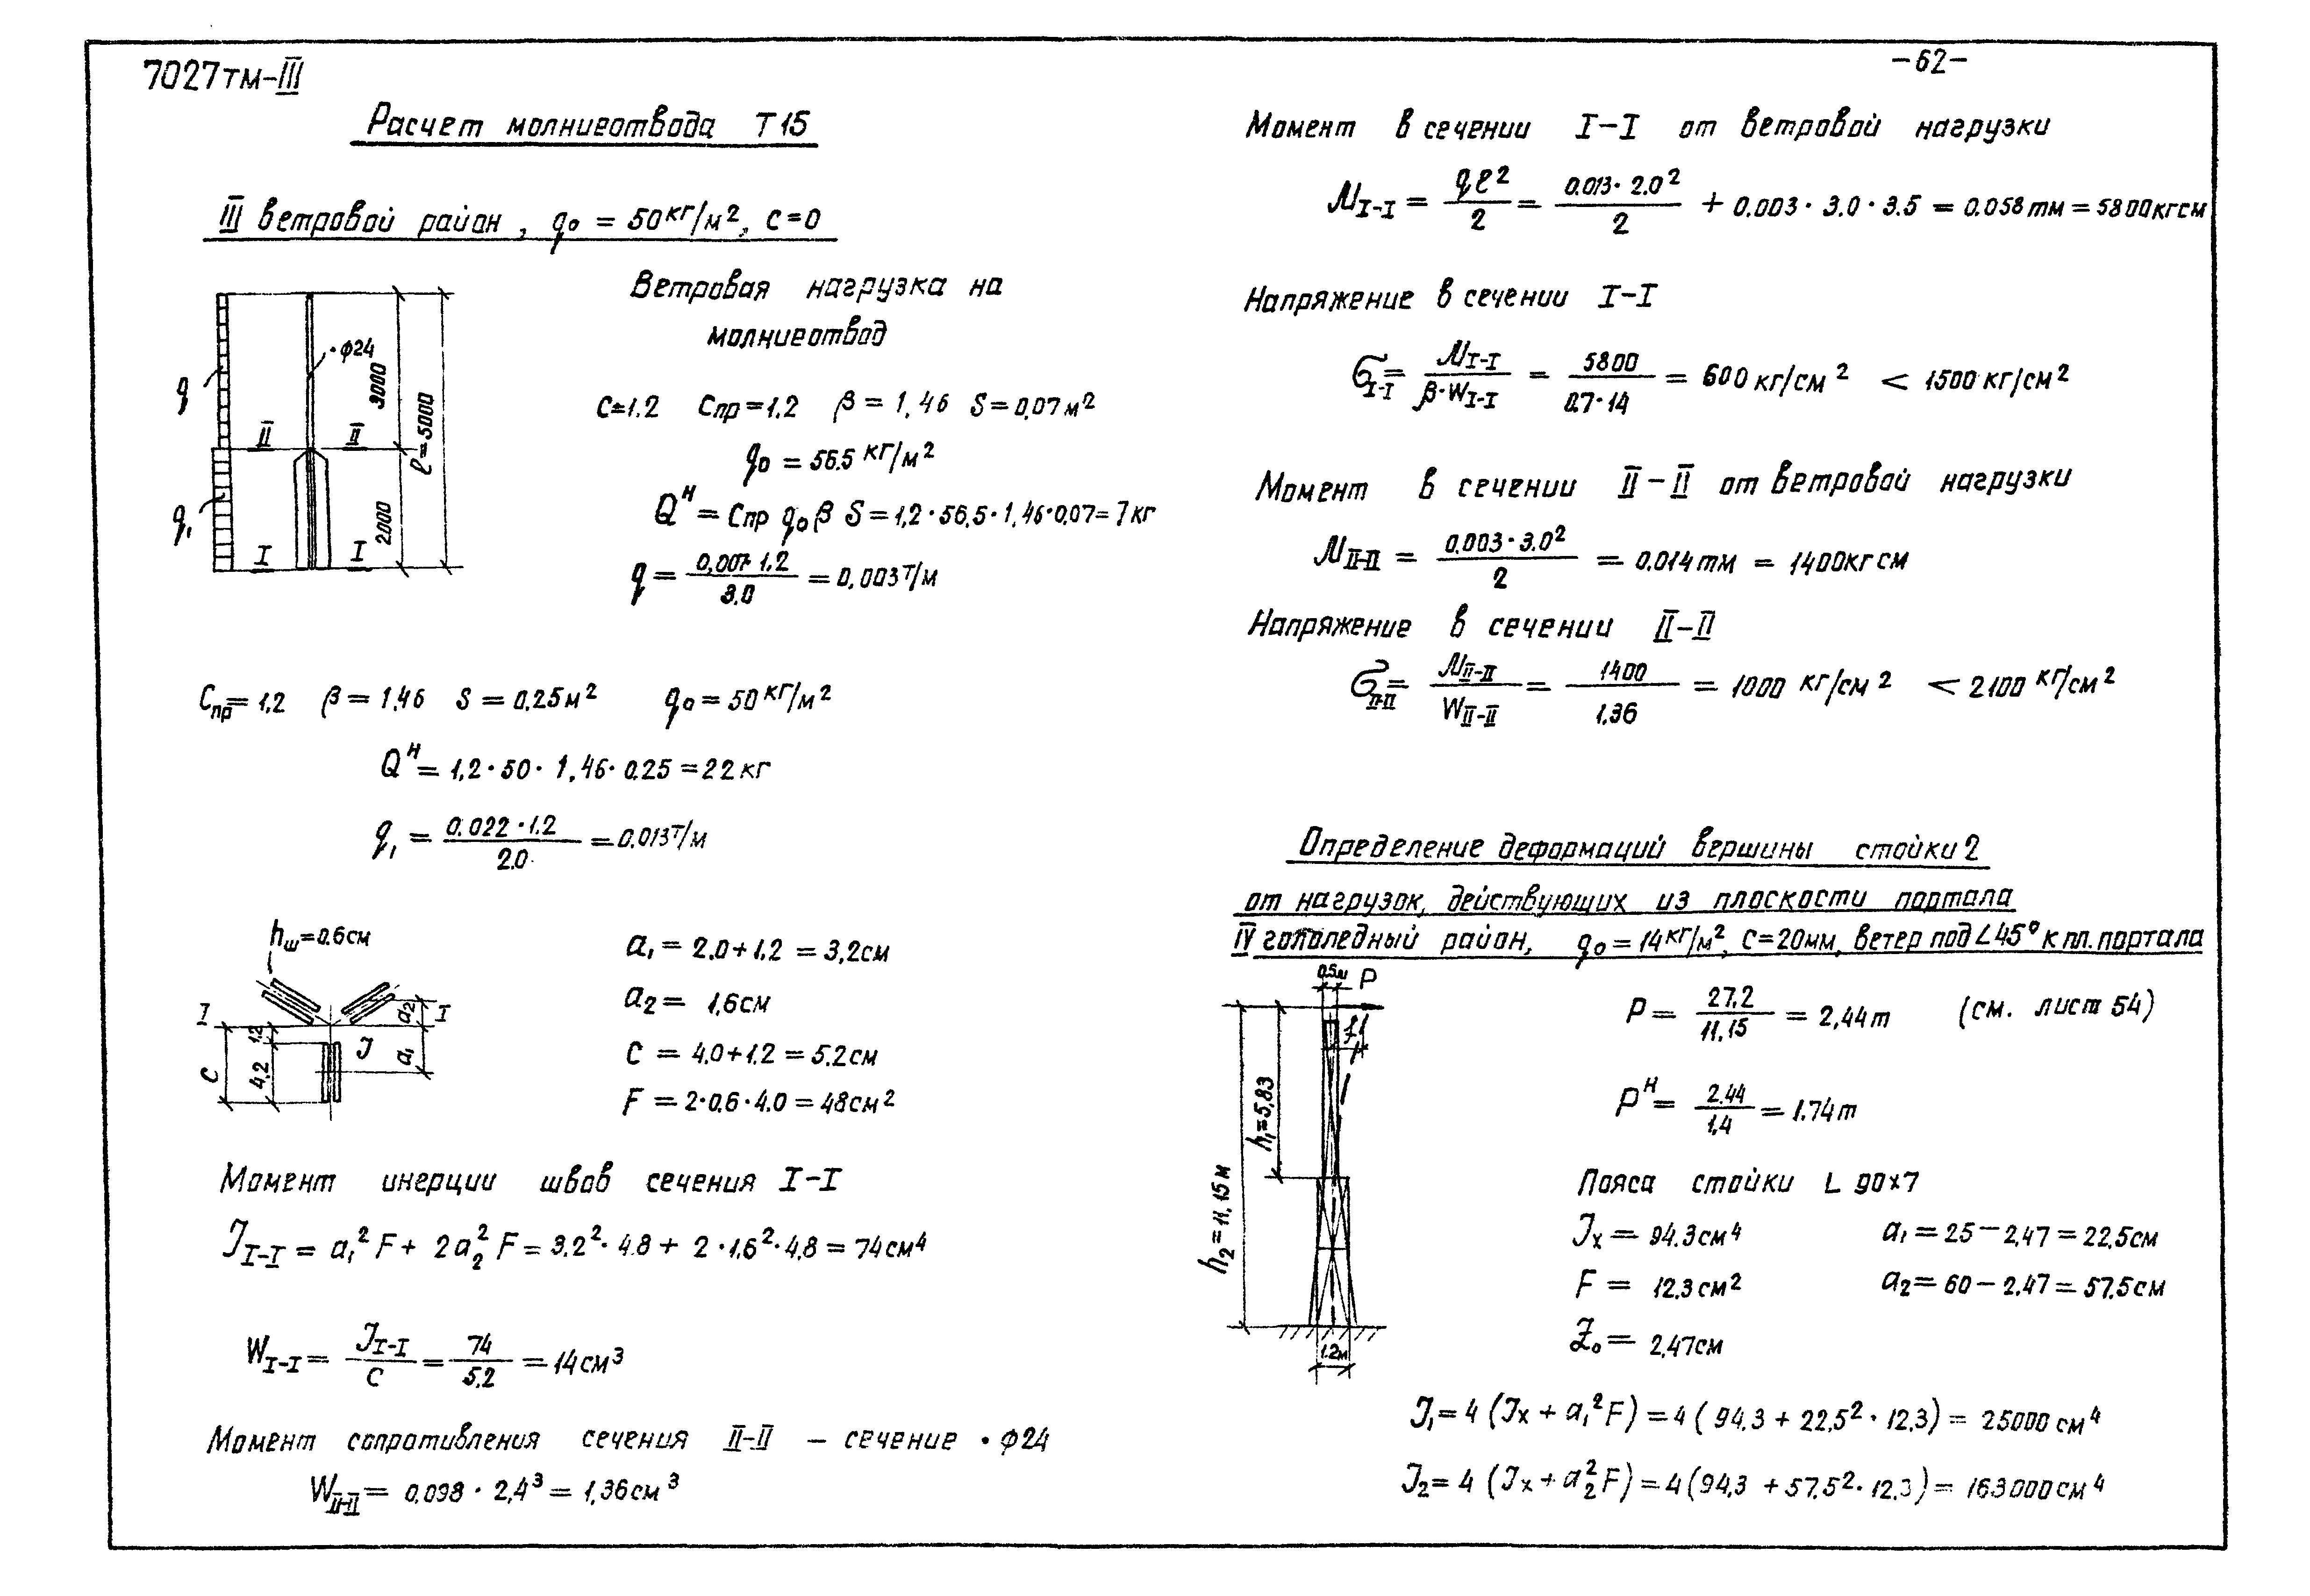 7027тм-III
-62-
Расчет молниеотвода Т15
III ветровой район, q₀ = 50 кг/м², с=0
q
q₁
•ф24
3000
2000
ℓ=5000
II II
I I
Ветровая нагрузка на
молниеотвод
С=1.2 Спр=1,2 β = 1,46 S=0,07м²
q₀ = 56.5 кг/м²
Qᴴ = Спр q₀ β S = 1,2·56,5·1,46·0,07= 7кг
q = 0,007·1,2 / 3.0 = 0,003 т/м
Спр=1,2 β = 1,46 S = 0,25м² q₀ = 50 кг/м²
Qᴴ = 1,2·50·1,46·0.25 = 22кг
q₁ = 0.022·1.2 / 2.0 = 0.013 т/м
hш=0.6см
I I
1,2
4,2
С
J
а₂
а₁
а₁ = 2.0+1.2 = 3,2см
а₂ = 1,6см
С = 4.0+1.2 = 5.2см
F = 2·0.6·4.0 = 48см²
Момент инерции швов сечения I-I
J I-I = а₁² F + 2а₂² F = 3.2²·4.8 + 2·1,6²·4,8 = 74см⁴
W I-I = J I-I / С = 74 / 5.2 = 14см³
Момент сопротивления сечения II-II – сечение •ф24
W II-II = 0,098·2,4³ = 1,36см³
Момент в сечении I-I от ветровой нагрузки
М I-I = qℓ² / 2 = 0.013·2.0² / 2 + 0.003·3.0·3.5 = 0.058тм = 5800кгсм
Напряжение в сечении I-I
σ I-I = М I-I / β·W I-I = 5800 / 0.7·14 = 600 кг/см² < 1500 кг/см²
Момент в сечении II-II от ветровой нагрузки
М II-II = 0.003·3.0² / 2 = 0.014тм = 1400кгсм
Напряжение в сечении II-II
σ II-II = М II-II / W II-II = 1400 / 1.36 = 1000 кг/см² < 2100 кг/см²
Определение деформаций вершины стойки 2
от нагрузок, действующих из плоскости портала
IV гололедный район, q₀=14кг/м², С=20мм, ветер под ∠45° к пл. портала
0.5м
P
h₁=5,83
h₂=11,15м
1.2м
P = 27.2 / 11.15 = 2,44т (см. лист 54)
Pᴴ = 2.44 / 1,4 = 1.74т
Пояса стойки L 90×7
Jх = 94.3см⁴ а₁ = 25 – 2,47 = 22,5см
F = 12.3см² а₂ = 60 – 2.47 = 57.5см
Z₀ = 2,47см
J₁ = 4 (Jх + а₁² F) = 4 (94,3 + 22,5²·12,3) = 25000 см⁴
J₂ = 4 (Jх + а₂² F) = 4 (94,3 + 57.5²·12.3) = 163000см⁴